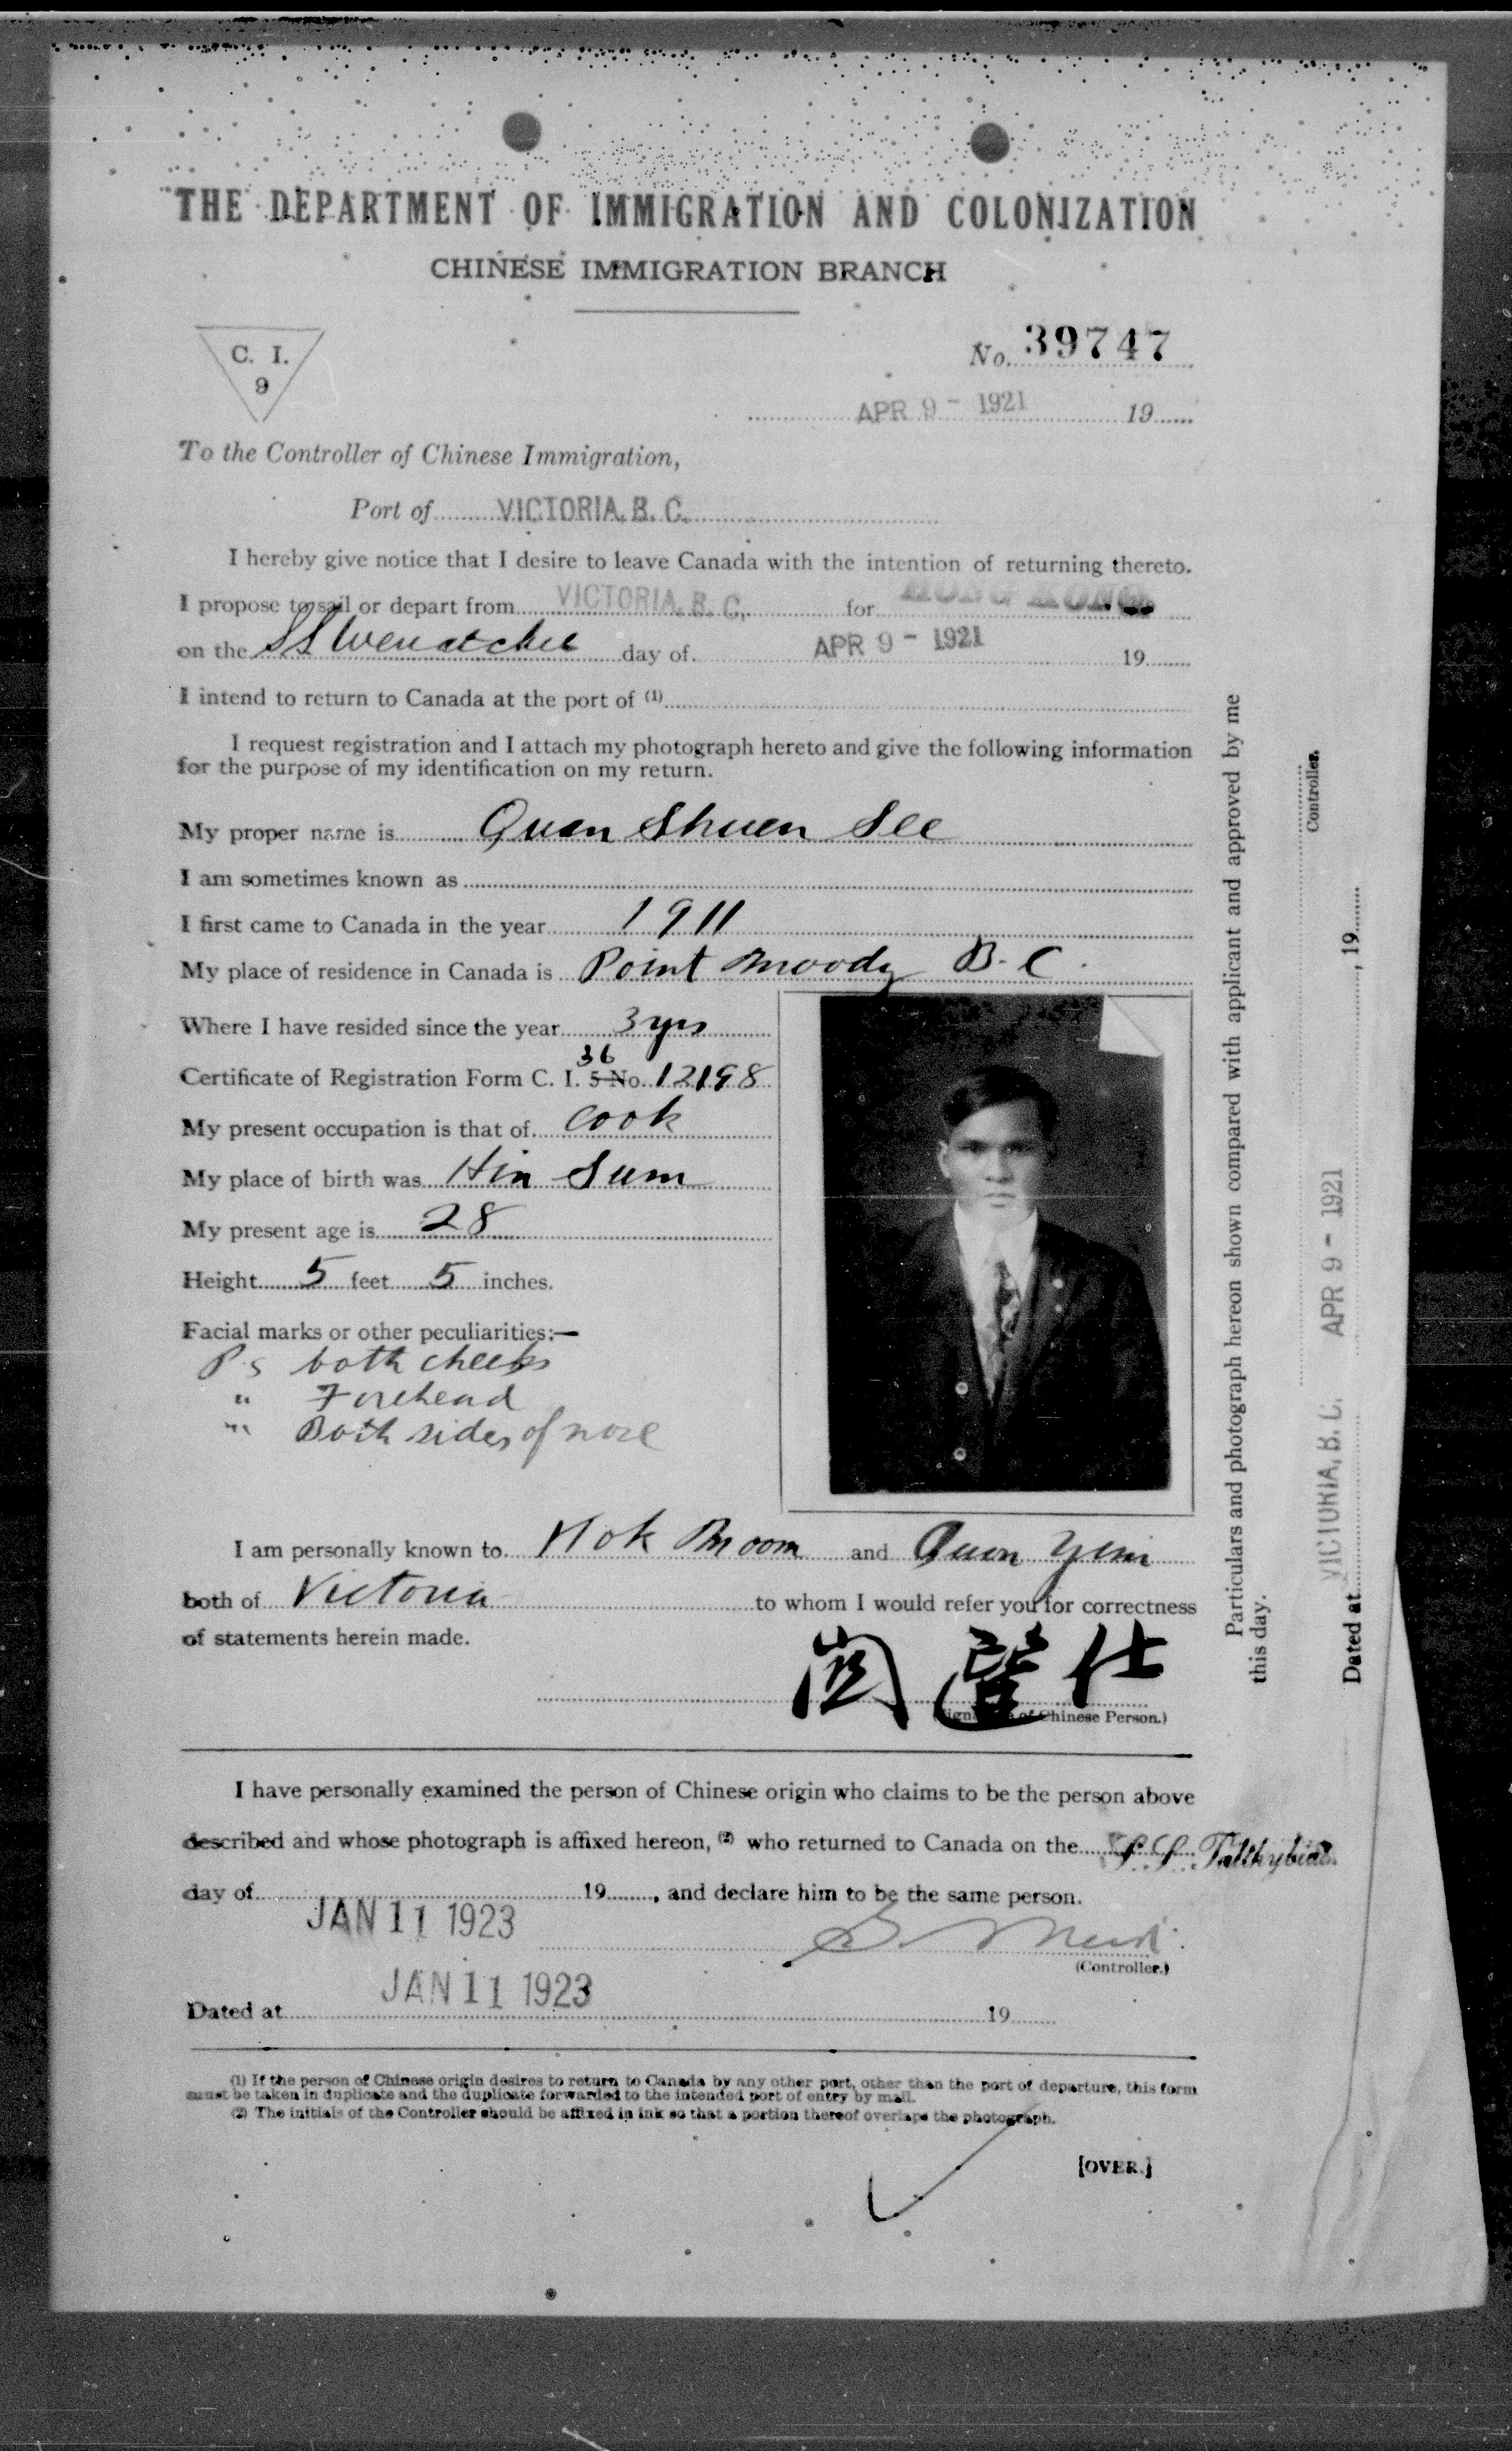 THE DEPARTMENT OF IMMIGRATION AND COLONIZATION
CHINESE IMMIGRATION BRANCH
C. I.
9
No. 39747
APR 9 - 1921 19
To the Controller of Chinese Immigration,
Port of VICTORIA, B. C.
I hereby give notice that I desire to leave Canada with the intention of returning thereto.
I propose to sail or depart from VICTORIA, B. C. for HONG KONG
on the SS Wenatchee day of APR 9 - 1921 19
I intend to return to Canada at the port of (1)
I request registration and I attach my photograph hereto and give the following information
for the purpose of my identification on my return.
My proper name is Quan Shuen See
I am sometimes known as
I first came to Canada in the year 1911
My place of residence in Canada is Point Moody B.C.
Where I have resided since the year 3 yrs
36
Certificate of Registration Form C. I. 5 No. 12198
My present occupation is that of Cook
My place of birth was Hin Sum
My present age is 28
Height 5 feet 5 inches.
Facial marks or other peculiarities:—
Ps both cheeks
" Forehead
" Both sides of nose
I am personally known to Hok Moom and Quon Yim
both of Victoria to whom I would refer you for correctness
of statements herein made.
仕
(Signature of Chinese Person.)
I have personally examined the person of Chinese origin who claims to be the person above
described and whose photograph is affixed hereon, (2) who returned to Canada on the S.S. Talthybius
day of 19 , and declare him to be the same person.
JAN 11 1923
(Controller.)
JAN 11 1923
Dated at 19
(1) If the person of Chinese origin desires to return to Canada by any other port, other than the port of departure, this form
must be taken in duplicate and the duplicate forwarded to the intended port of entry by mail.
(2) The initials of the Controller should be affixed in ink so that a portion thereof overlaps the photograph.
[OVER.]
Particulars and photograph hereon shown compared with applicant and approved by me
this day.
Controller.
Dated at VICTORIA, B. C. APR 9 - 1921 , 19